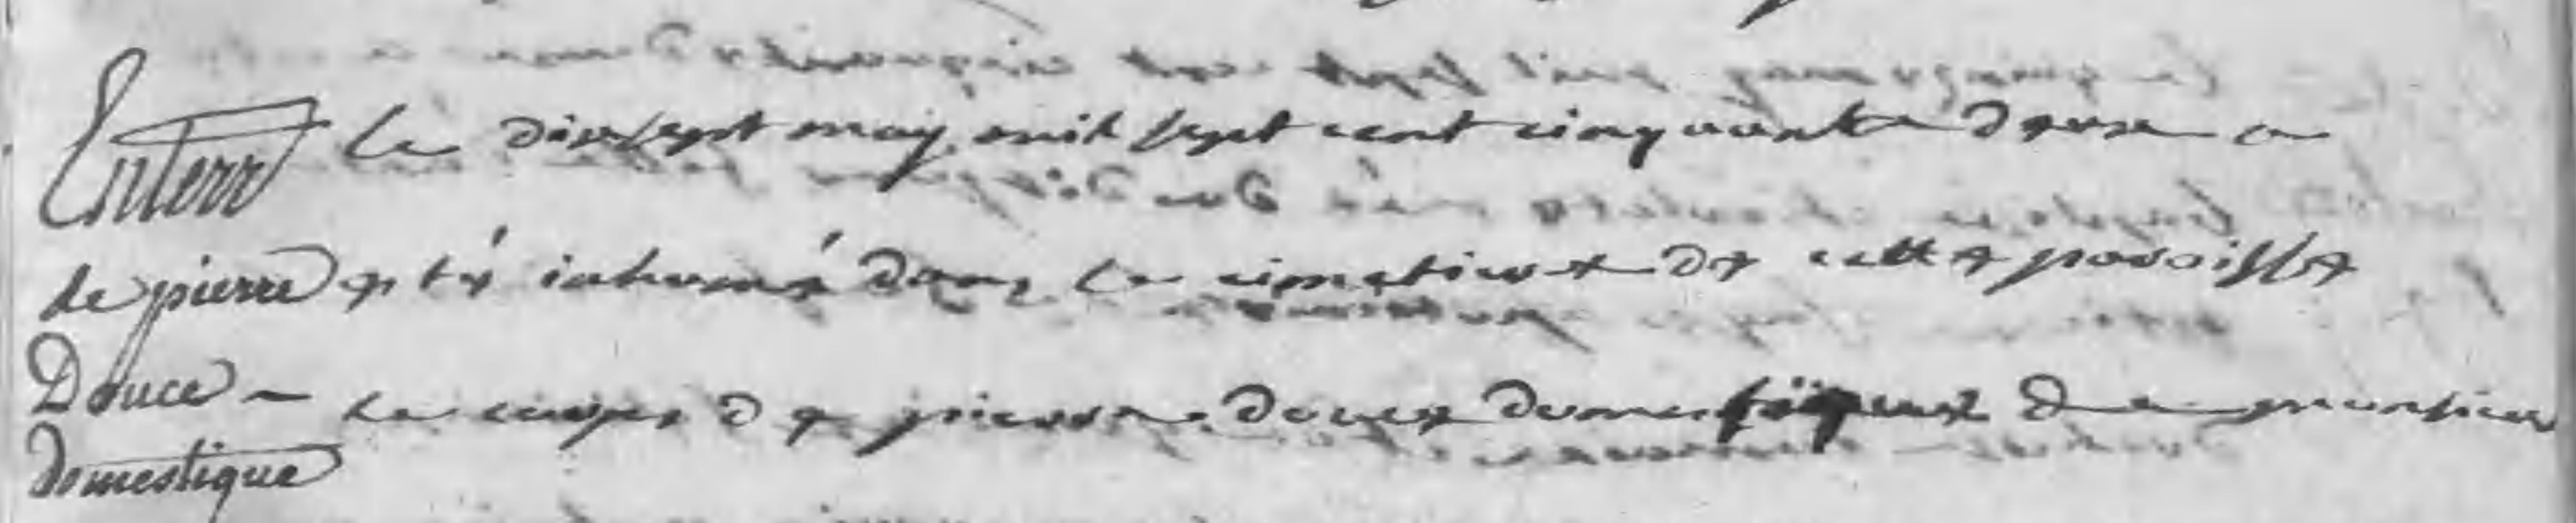 Enterr
de pierre
Douce -
domestique
Le dixsept may mil sept cent cinquante deux a
eté inhumé dans le cimetiere de cette paroisse
le corps de pierre douce domestique de monsieur